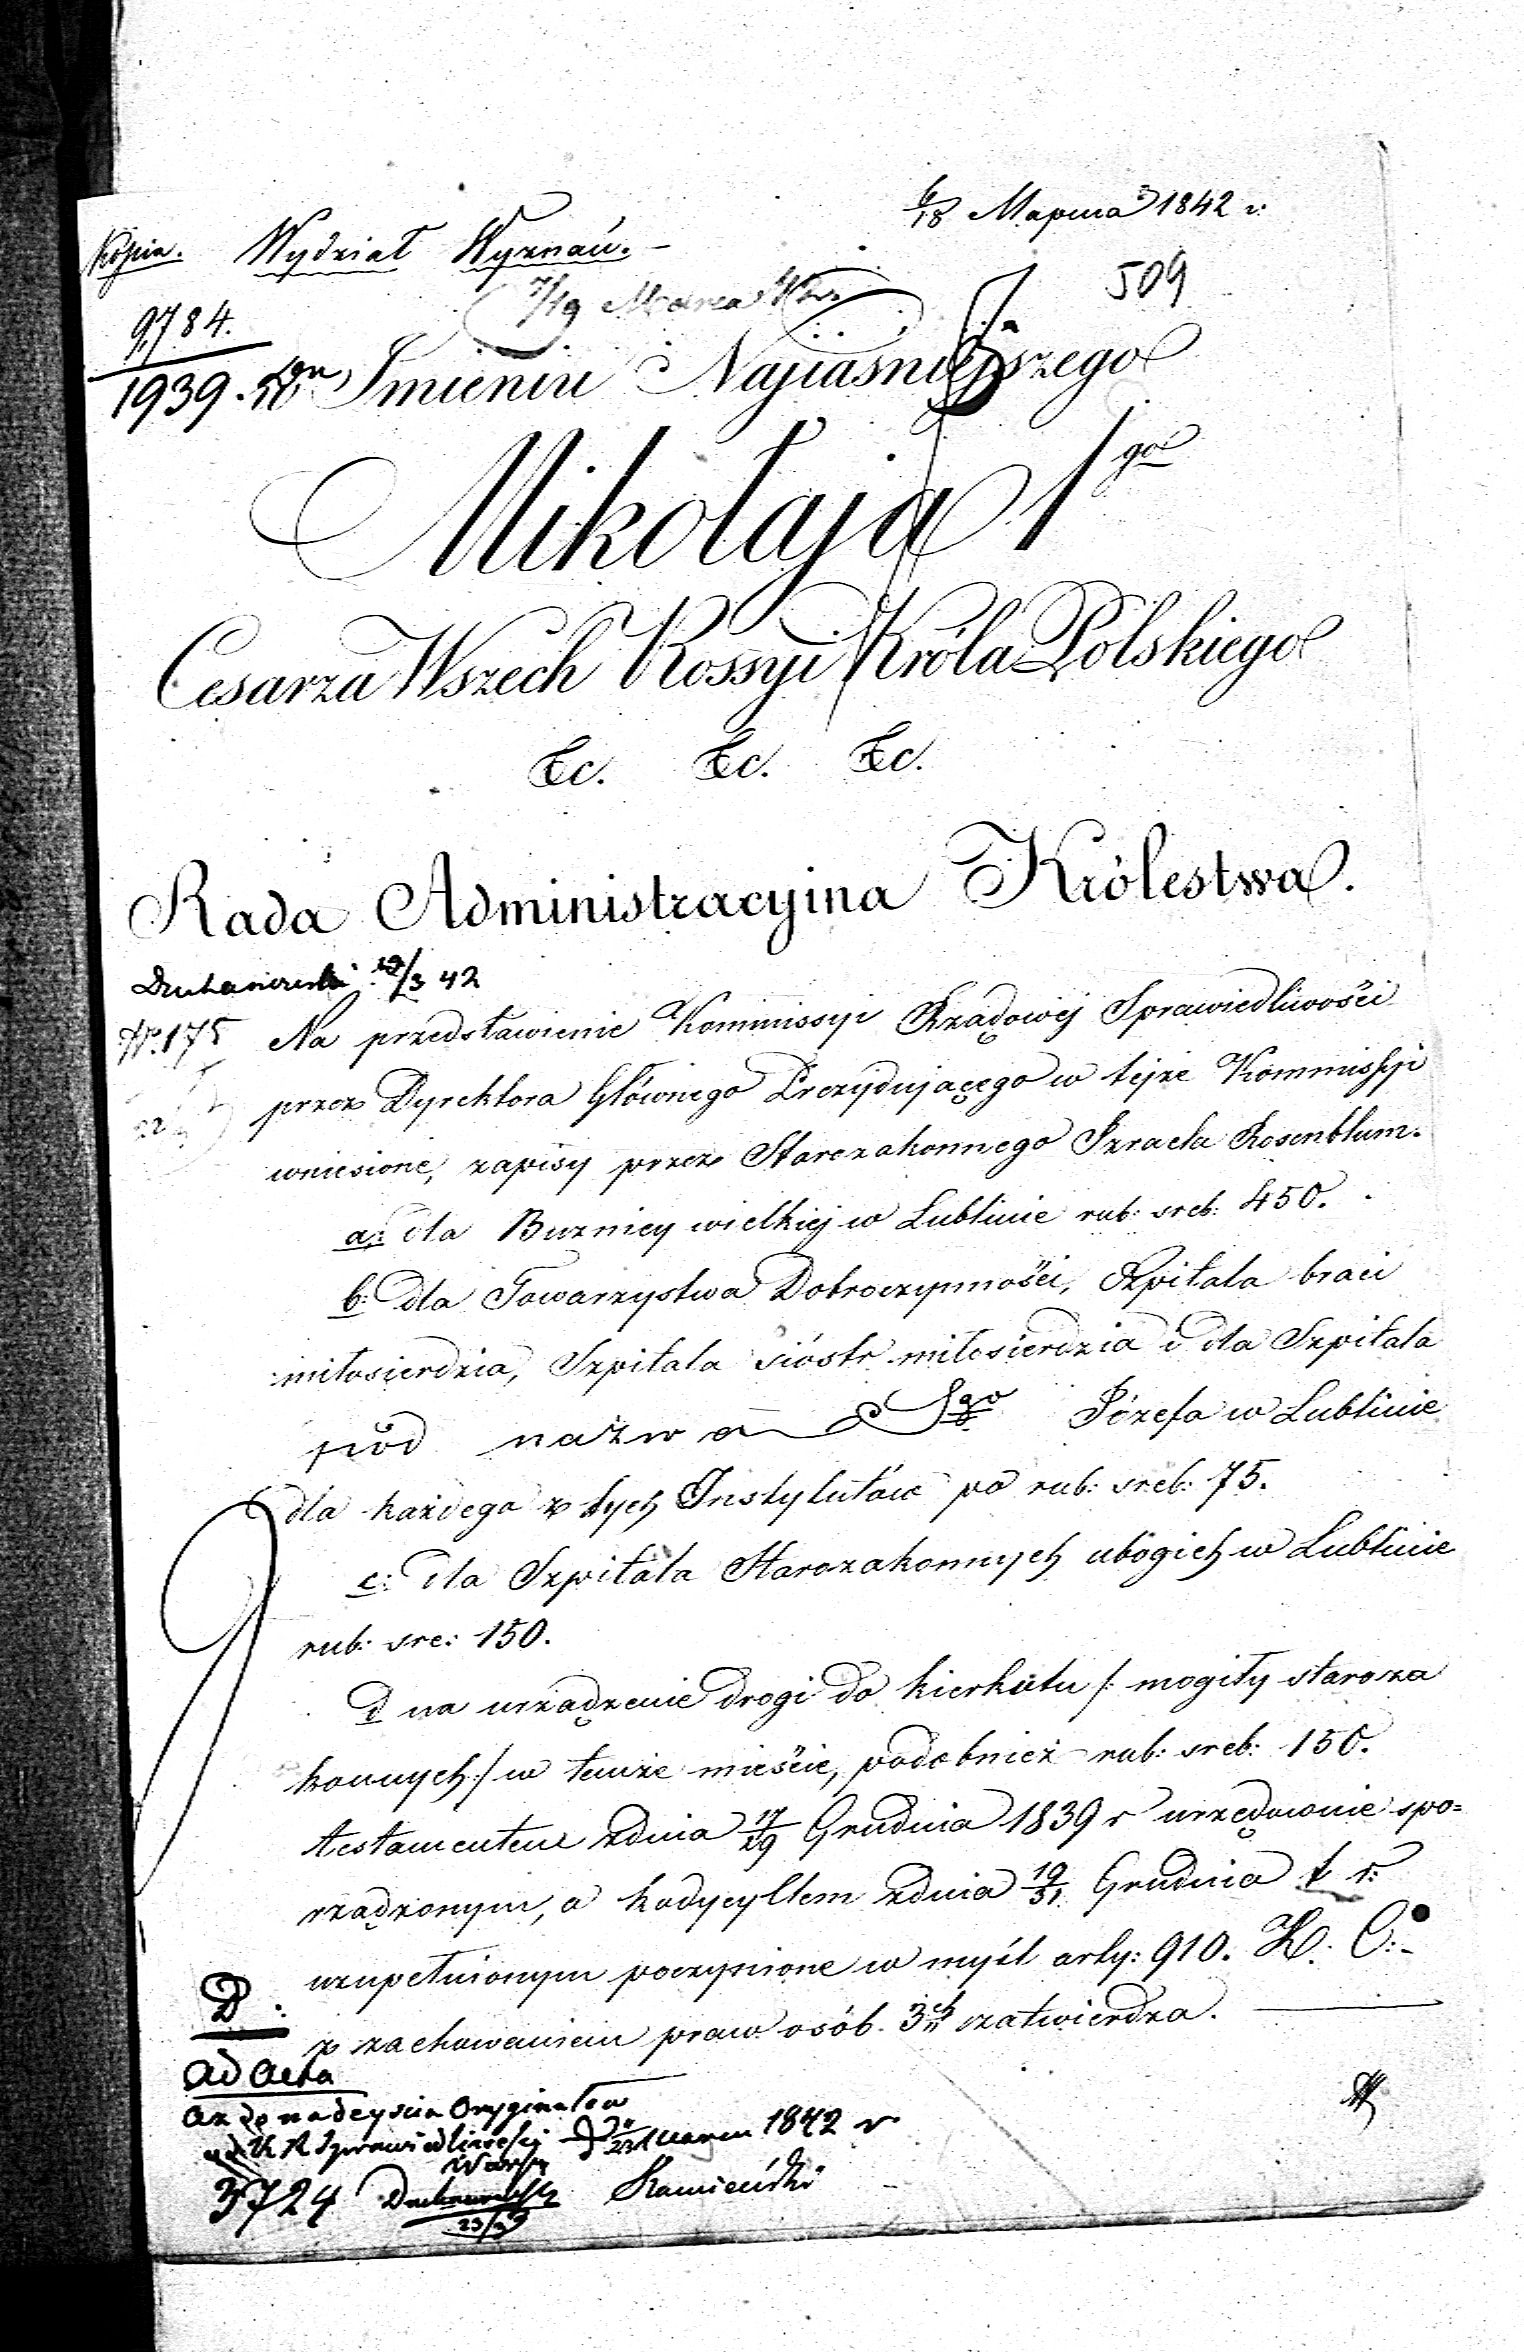 6/18 Марта 1842 r:
Kopia. Wydział Wyznań. -
7/19 Marca
509
9784.
1939.
w Imieniu Najiaśnieyszego
Mikołaja 1go
Cesarza Wszech Rossyi Króla Polskiego
&c. &c. &c.
Rada Administracyina Królestwa.
19/3 42
No. 175
Na przedstawienie Kommissyi Rządowéj Sprawiedliwości
przez Dyrektora Głównego Prezydującego w tejże Kommissyi
wniesione, zapisy przez Starozakonnego Izraela Rosenblum.
a: dla Buznicy wielkiej w Lublinie rub: sreb: 450.
b: dla Towarzystwa Dobroczynności, Szpitala braci
miłosierdzia, Szpitala sióstr miłosierdzia i dla Szpitala
pód nazwą Sgo Józefa w Lublinie
dla każdego z tych Instytutów po rub: sreb: 75.
c: dla Szpitala Starozakonnych ubogich w Lublinie
rub: sre: 150.
d na urządzenie drogi do kierkutu /: mogiły staroza
konnych :/ w temże mieście, podobnież rub: sreb: 150.
testamentem z dnia 17/29 Grudnia 1839 r urzędownie spo=
rządzonym, a kodycyllem z dnia 19/31 Grudnia t. r:
uzupełnionym poczynione w myśl arty: 910. K. C:-
z zachowaniem praw osób 3ch zatwierdza.
D.
ad acta
aż do nadeyścia Oryginałów
od K R Sprawiedliwości D 11/23 Marca 1842 r
Warsz
3724
Kamieński
23/3